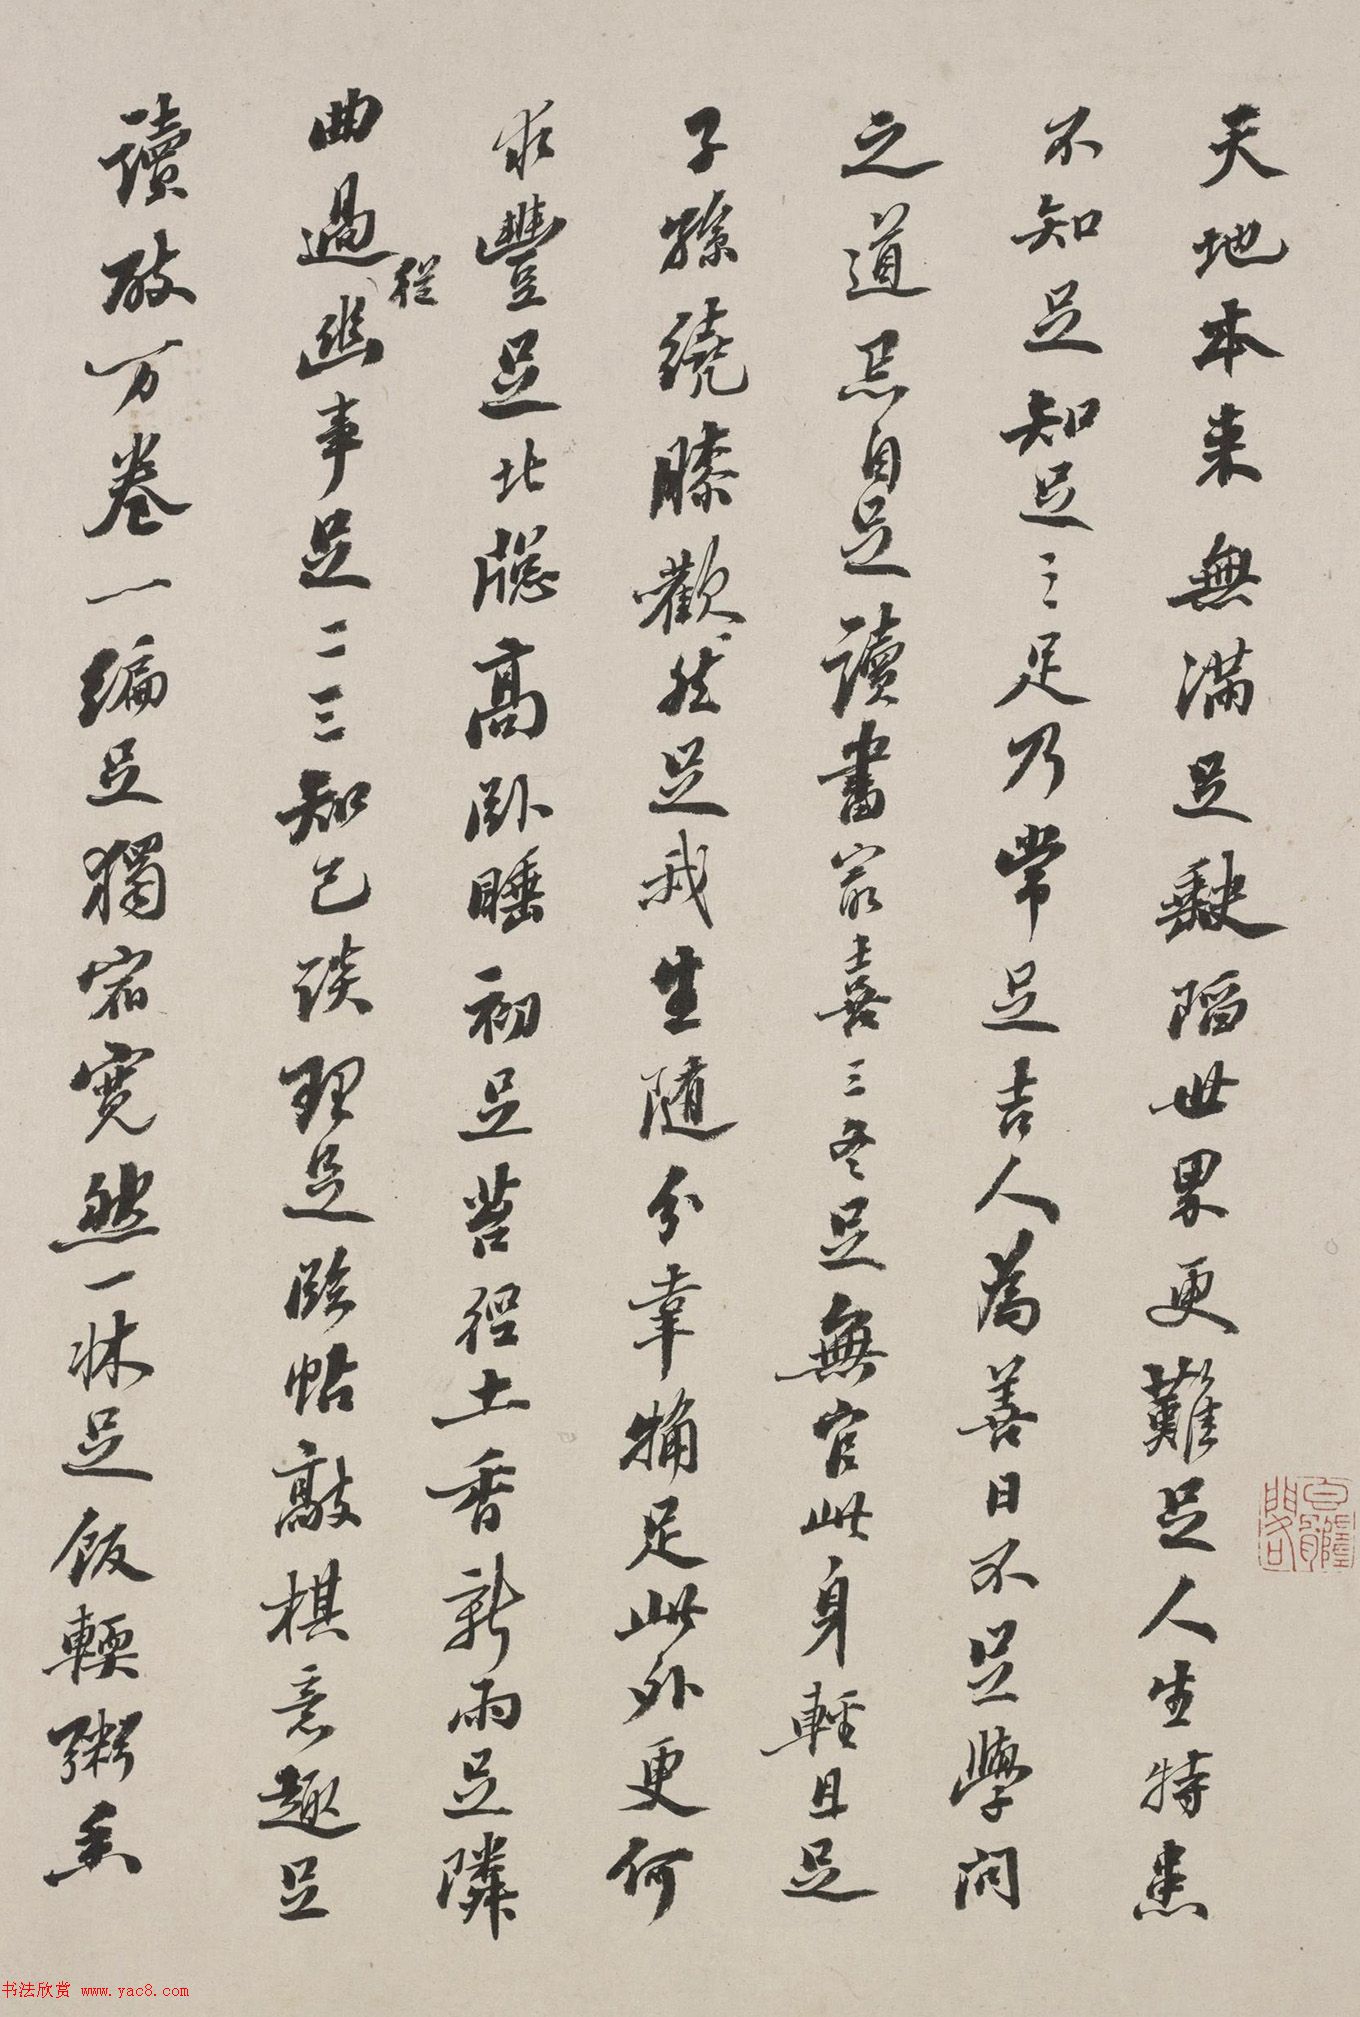 天地本来無滿足缺陷世界更難足人生特患
不知足知足之足乃常足吉人為善日不足學問
之道忌自足讀書最喜三冬足無官此身輕且足
子孫繞膝歡然足我生隨分幸稱足此外更何
求豐足北牕高卧睡初足苔徑土香新雨足隣
曲過從幽事足二三知己談理足臨帖敲棋意趣足
讀破万卷一編足獨宿寬然一牀足飯輭粥香
书法欣赏 www.yac8.com